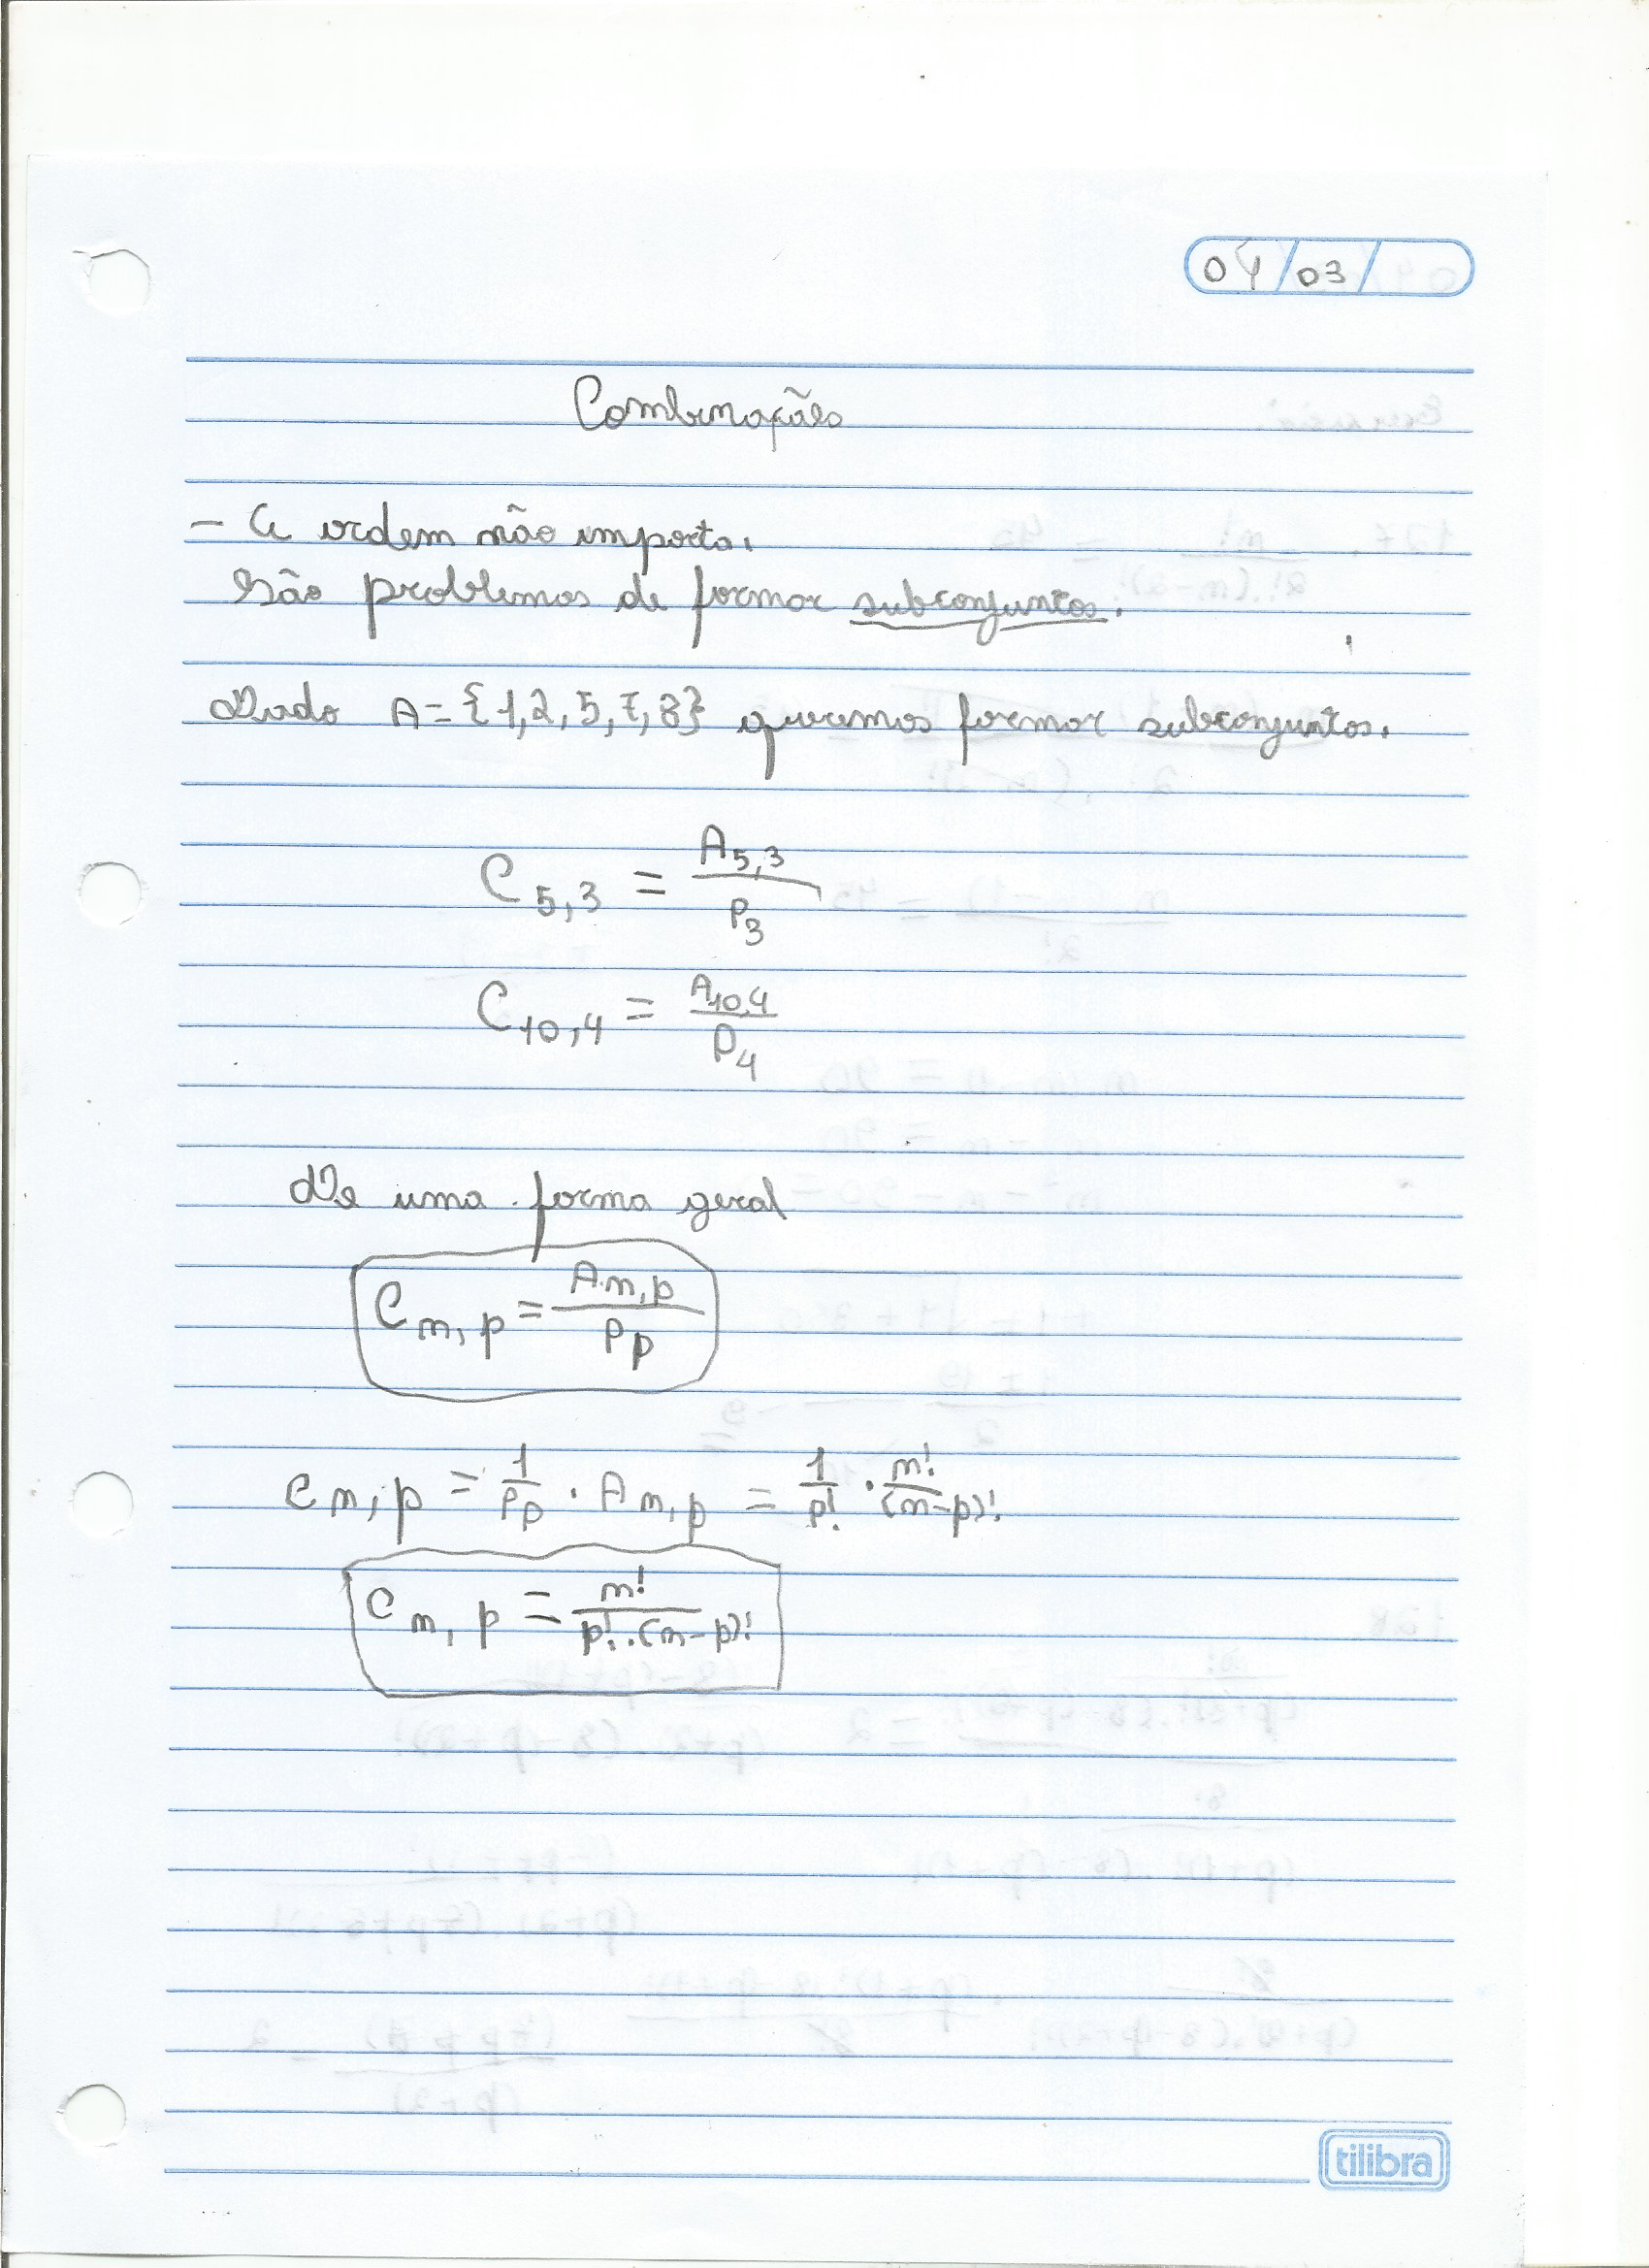 04/03/
Combinações
- A ordem não importa.
São problemas de formar subconjuntos.
Dado A = {1,2,5,7,8} queremos formar subconjuntos.
C5,3 = A5,3 / P3
C10,4 = A10,4 / P4
De uma forma geral
Cn,p = An,p / Pp
Cn,p = 1/Pp . An,p = 1/p! . n!/(n-p)!
Cn,p = n! / p! . (n-p)!
tilibra